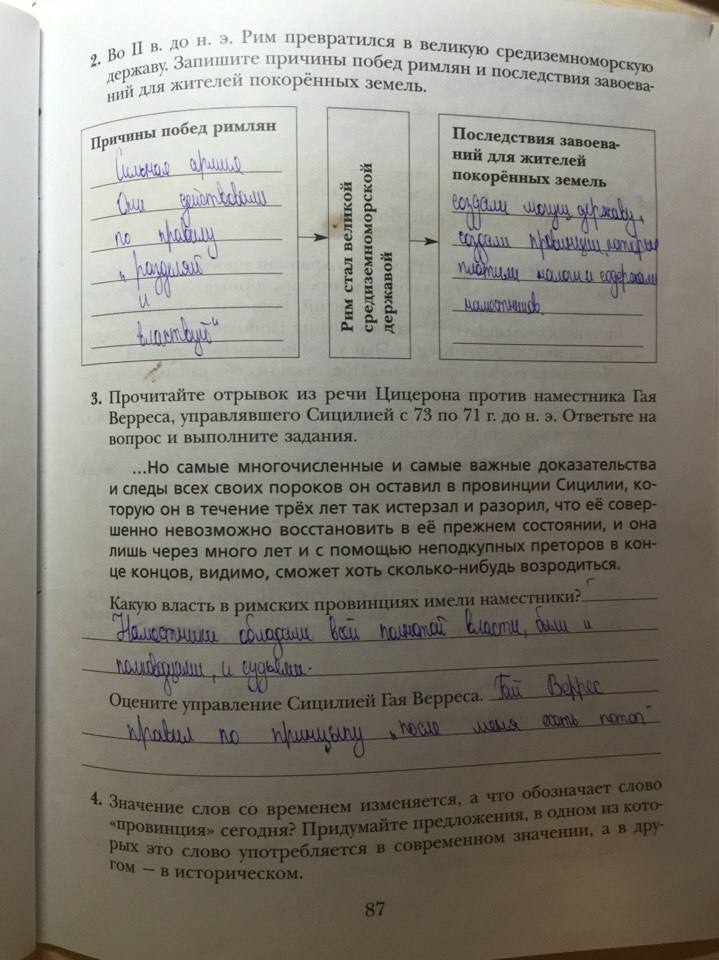 2. Во II в. до н. э. Рим превратился в великую средиземноморскую
державу. Запишите причины побед римлян и последствия завоева-
ний для жителей покорённых земель.
Причины побед римлян
Сильная армия
Они действовали
по правилу
„разделяй
и
властвуй“
Рим стал великой
средиземноморской
державой
Последствия завоева-
ний для жителей
покорённых земель
создали мощн державу,
создали провинции, которые
платили налоги и содержали
наместников.
3. Прочитайте отрывок из речи Цицерона против наместника Гая
Верреса, управлявшего Сицилией с 73 по 71 г. до н. э. Ответьте на
вопрос и выполните задания.
...Но самые многочисленные и самые важные доказательства
и следы всех своих пороков он оставил в провинции Сицилии, ко-
торую он в течение трёх лет так истерзал и разорил, что её совер-
шенно невозможно восстановить в её прежнем состоянии, и она
лишь через много лет и с помощью неподкупных преторов в кон-
це концов, видимо, сможет хоть сколько-нибудь возродиться.
Какую власть в римских провинциях имели наместники?
Наместники обладали всей полнотой власти, были и
полководцами, и судьями.
Оцените управление Сицилией Гая Верреса. Гай Веррес
правил по принцыпу „после меня хоть потоп“
4. Значение слов со временем изменяется, а что обозначает слово
«провинция» сегодня? Придумайте предложения, в одном из кото-
рых это слово употребляется в современном значении, а в дру-
гом – в историческом.
87